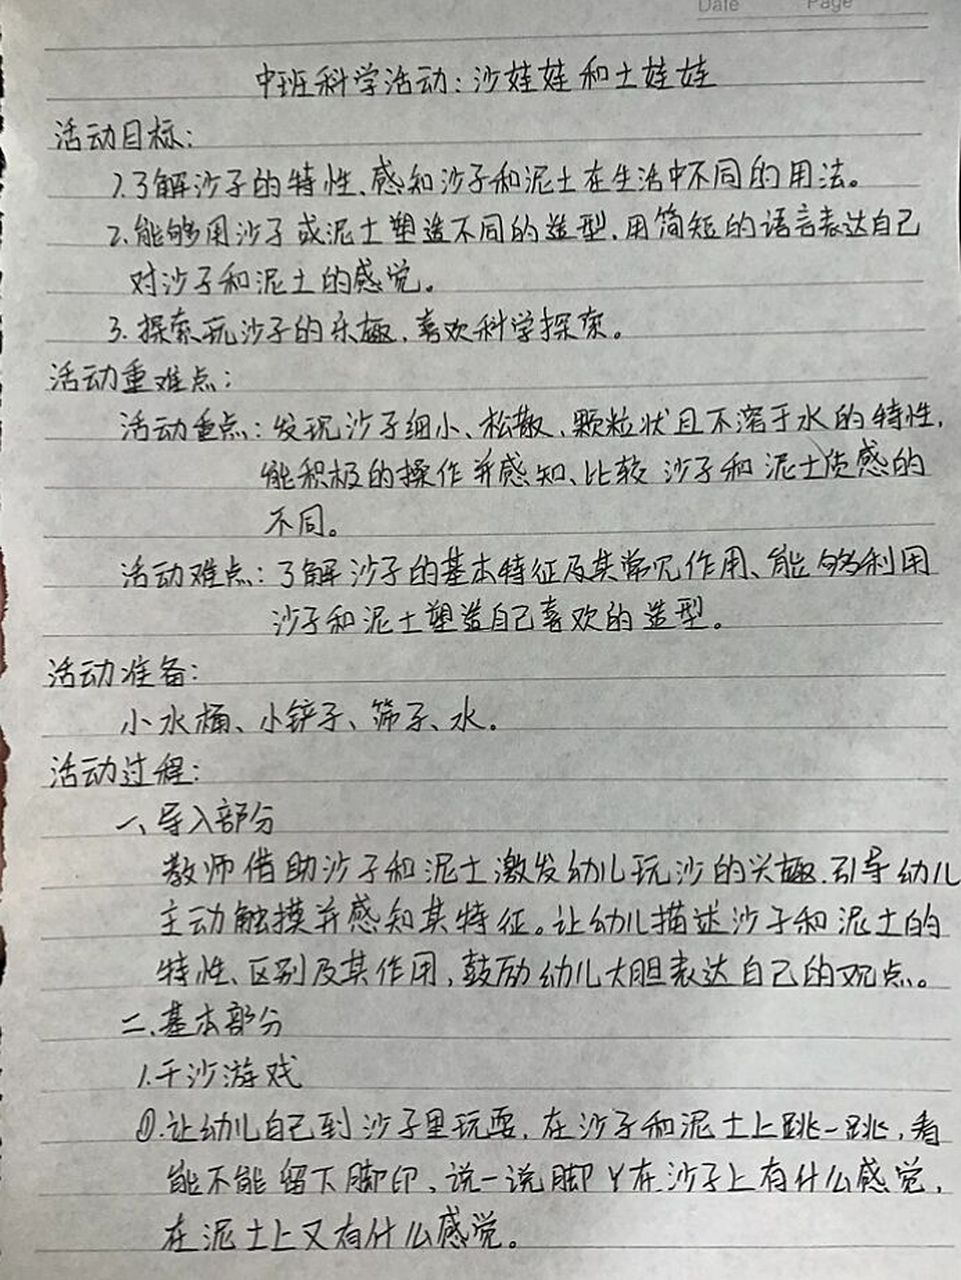 Date Page
中班科学活动:沙娃娃和土娃娃
活动目标:
1.了解沙子的特性、感知沙子和泥土在生活中不同的用法。
2.能够用沙子或泥土塑造不同的造型,用简短的语言表达自己
对沙子和泥土的感觉。
3.探索玩沙子的乐趣,喜欢科学探索。
活动重难点:
活动重点:发现沙子细小、松散、颗粒状且不溶于水的特性,
能积极的操作并感知、比较沙子和泥土质感的
不同。
活动难点:了解沙子的基本特征及其常见作用、能够利用
沙子和泥土塑造自己喜欢的造型。
活动准备:
小水桶、小铲子、筛子、水。
活动过程:
一、导入部分
教师借助沙子和泥土激发幼儿玩沙的兴趣.引导幼儿
主动触摸并感知其特征。让幼儿描述沙子和泥土的
特性、区别及其作用,鼓励幼儿大胆表达自己的观点。
二.基本部分
1.干沙游戏
①.让幼儿自己到沙子里玩耍,在沙子和泥土上跳一跳,看
能不能留下脚印、说一说脚丫在沙子上有什么感觉,
在泥土上又有什么感觉。